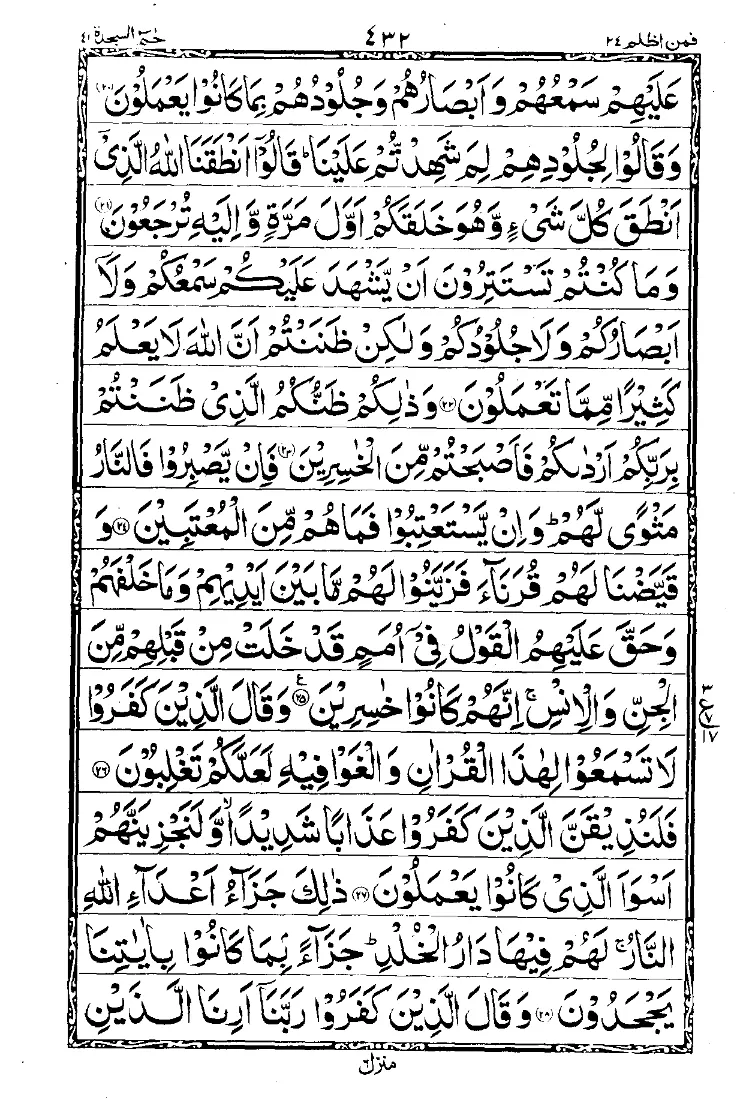 فمن اظلم ٢٤ ٤٣٢ حٰمٓ السجدة ٤١
عَلَيْهِمْ سَمْعُهُمْ وَ اَبْصَارُهُمْ وَ جُلُوْدُهُمْ بِمَا كَانُوْا يَعْمَلُوْنَ ﴿٢٠﴾
وَ قَالُوْا لِجُلُوْدِهِمْ لِمَ شَهِدْتُّمْ عَلَيْنَا ؕ قَالُوْۤا اَنْطَقَنَا اللّٰهُ الَّذِیْۤ
اَنْطَقَ كُلَّ شَیْءٍ وَّ هُوَ خَلَقَكُمْ اَوَّلَ مَرَّةٍ وَّ اِلَيْهِ تُرْجَعُوْنَ ﴿٢١﴾
وَ مَا كُنْتُمْ تَسْتَتِرُوْنَ اَنْ يَّشْهَدَ عَلَيْكُمْ سَمْعُكُمْ وَ لَاۤ
اَبْصَارُكُمْ وَ لَا جُلُوْدُكُمْ وَ لٰكِنْ ظَنَنْتُمْ اَنَّ اللّٰهَ لَا يَعْلَمُ
كَثِيْرًا مِّمَّا تَعْمَلُوْنَ ﴿٢٢﴾ وَ ذٰلِكُمْ ظَنُّكُمُ الَّذِیْ ظَنَنْتُمْ
بِرَبِّكُمْ اَرْدٰىكُمْ فَاَصْبَحْتُمْ مِّنَ الْخٰسِرِيْنَ ﴿٢٣﴾ فَاِنْ يَّصْبِرُوْا فَالنَّارُ
مَثْوًى لَّهُمْ ؕ وَ اِنْ يَّسْتَعْتِبُوْا فَمَا هُمْ مِّنَ الْمُعْتَبِيْنَ ﴿٢٤﴾ وَ
قَيَّضْنَا لَهُمْ قُرَنَآءَ فَزَيَّنُوْا لَهُمْ مَّا بَيْنَ اَيْدِيْهِمْ وَ مَا خَلْفَهُمْ
وَ حَقَّ عَلَيْهِمُ الْقَوْلُ فِیْۤ اُمَمٍ قَدْ خَلَتْ مِنْ قَبْلِهِمْ مِّنَ
الْجِنِّ وَ الْاِنْسِ ۚ اِنَّهُمْ كَانُوْا خٰسِرِيْنَ ﴿٢٥﴾ ع وَ قَالَ الَّذِيْنَ كَفَرُوْا
٣ ع ٧ ١٧
لَا تَسْمَعُوْا لِهٰذَا الْقُرْاٰنِ وَ الْغَوْا فِيْهِ لَعَلَّكُمْ تَغْلِبُوْنَ ﴿٢٦﴾
فَلَنُذِيْقَنَّ الَّذِيْنَ كَفَرُوْا عَذَابًا شَدِيْدًا ۙ وَّ لَنَجْزِيَنَّهُمْ
اَسْوَاَ الَّذِیْ كَانُوْا يَعْمَلُوْنَ ﴿٢٧﴾ ذٰلِكَ جَزَآءُ اَعْدَآءِ اللّٰهِ
النَّارُ ۚ لَهُمْ فِيْهَا دَارُ الْخُلْدِ ؕ جَزَآءًۢ بِمَا كَانُوْا بِاٰيٰتِنَا
يَجْحَدُوْنَ ﴿٢٨﴾ وَ قَالَ الَّذِيْنَ كَفَرُوْا رَبَّنَاۤ اَرِنَا الَّذَيْنِ
منزل ٦